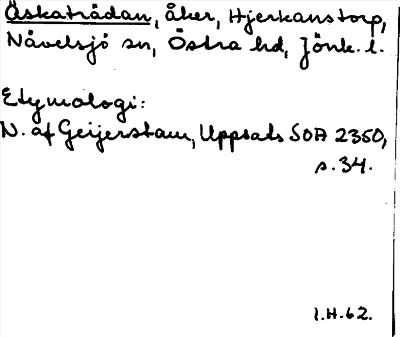 Äskaträdan, åker, Hjerkanstorp,
Nävelsjö sn, Östra hd, Jönk. l.
Etymologi:
N. af Geijerstam, Uppsats SOA 2350,
s. 34.
I.H.62.